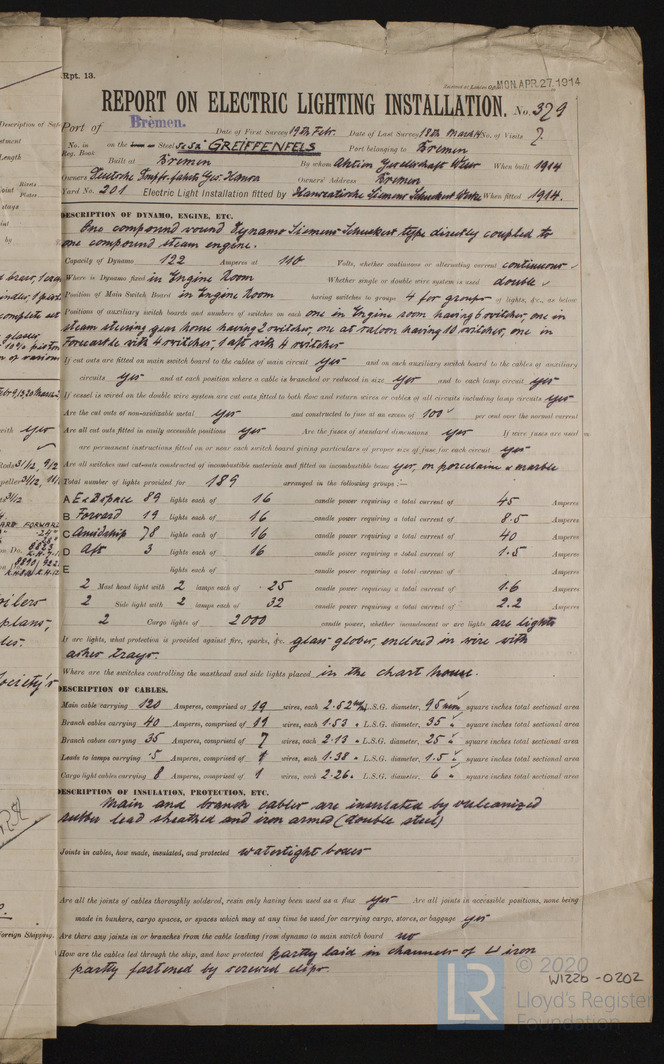 Rpt. 13.
MON. APR. 27. 1914
REPORT ON ELECTRIC LIGHTING INSTALLATION. No. 379
Port of Bremen. Date of First Survey 19th Febr. Date of Last Survey 18th March 14 No. of Visits 7.
No. in Reg. Book on the Steel "GREIFFENFELS" Port belonging to Bremen
Built at Bremen By whom Aktien Gesellschaft Weser When built 1914
Owners Deutsche Dampfs. fahrts Ges. Hansa Owners' Address Bremen
Yard No. 201 Electric Light Installation fitted by Hanseatische Siemens Schuckert Werke When fitted 1914.
DESCRIPTION OF DYNAMO, ENGINE, ETC.
One compound wound Dynamo Siemens Schuckert type directly coupled to
one compound steam engine.
Capacity of Dynamo 122 Amperes at 110 Volts, whether continuous or alternating current continuous
Where is Dynamo fixed in Engine Room Whether single or double wire system is used double
Position of Main Switch Board in Engine Room having switches to groups 4 for groups of lights, &c., as below
Positions of auxiliary switch boards and numbers of switches on each one in Engine room having 6 switches, one in
steam steering gear house having 2 switches, one at saloon having 10 switches, one in
Forecastle with 4 switches, 1 aft with 4 switches
If cut outs are fitted on main switch board to the cables of main circuit yes and on each auxiliary switch board to the cables of auxiliary
circuits yes and at each position where a cable is branched or reduced in size yes and to each lamp circuit yes
If vessel is wired on the double wire system are cut outs fitted to both flow and return wires or cables of all circuits including lamp circuits yes
Are the cut outs of non-oxidizable metal yes and constructed to fuse at an excess of 100 per cent over the normal current
Are all cut outs fitted in easily accessible positions yes Are the fuses of standard dimensions yes If wire fuses are used
are permanent instructions fitted on or near each switch board giving particulars of proper size of fuse for each circuit yes
Are all switches and cut-outs constructed of incombustible materials and fitted on incombustible bases yes, on porcelaine & marble
Total number of lights provided for 189 arranged in the following groups :—
A E & B space 89 lights each of 16 candle power requiring a total current of 45 Amperes
B Forward 19 lights each of 16 candle power requiring a total current of 8.5 Amperes
C Amidship 78 lights each of 16 candle power requiring a total current of 40 Amperes
D Aft 3 lights each of 16 candle power requiring a total current of 1.5 Amperes
E lights each of candle power requiring a total current of Amperes
2 Mast head light with 2 lamps each of 25 candle power requiring a total current of 1.6 Amperes
2 Side light with 2 lamps each of 32 candle power requiring a total current of 2.2 Amperes
2 Cargo lights of 2000 candle power, whether incandescent or arc lights arc lights
If arc lights, what protection is provided against fire, sparks, &c. glass globes, enclosed in wire with
ashes trays.
Where are the switches controlling the masthead and side lights placed in the chart house.
DESCRIPTION OF CABLES.
Main cable carrying 120 Amperes, comprised of 19 wires, each 2.52 m/m L.S.G. diameter, 95 mm square inches total sectional area
Branch cables carrying 40 Amperes, comprised of 19 wires, each 1.53 " L.S.G. diameter, 35 " square inches total sectional area
Branch cables carrying 35 Amperes, comprised of 7 wires, each 2.13 " L.S.G. diameter, 25 " square inches total sectional area
Leads to lamps carrying .5 Amperes, comprised of 1 wires, each 1.38 " L.S.G. diameter, 1.5 " square inches total sectional area
Cargo light cables carrying 8 Amperes, comprised of 1 wires, each 2.26 " L.S.G. diameter, 6 " square inches total sectional area
DESCRIPTION OF INSULATION, PROTECTION, ETC.
Main and branch cables are insulated by vulcanized
rubber lead sheathed and iron armed (double steel)
Joints in cables, how made, insulated, and protected watertight boxes
Are all the joints of cables thoroughly soldered, resin only having been used as a flux yes Are all joints in accessible positions, none being
made in bunkers, cargo spaces, or spaces which may at any time be used for carrying cargo, stores, or baggage yes
Are there any joints in or branches from the cable leading from dynamo to main switch board no
How are the cables led through the ship, and how protected partly laid in channels of U iron
partly fastened by screwed clips.
W1220-0202
LR
© 2020
Lloyd's Register
Foundation